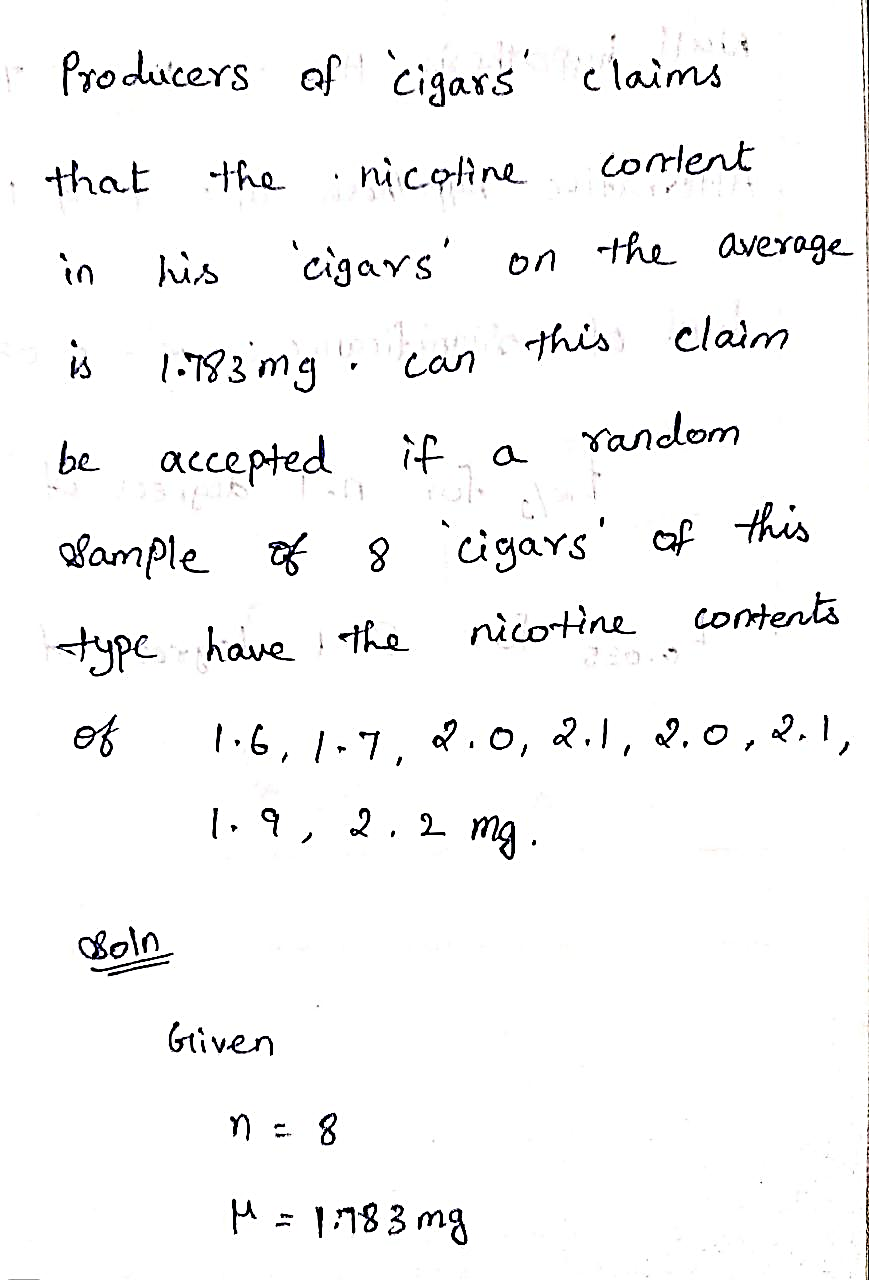 Producers of 'cigars' claims
that the nicotine content
in his 'cigars' on the average
is 1.783 mg. can this claim
be accepted if a random
sample of 8 'cigars' of this
type have the nicotine contents
of 1.6, 1.7, 2.0, 2.1, 2.0, 2.1,
1.9, 2.2 mg.
Soln
Given
n = 8
μ = 1.783 mg